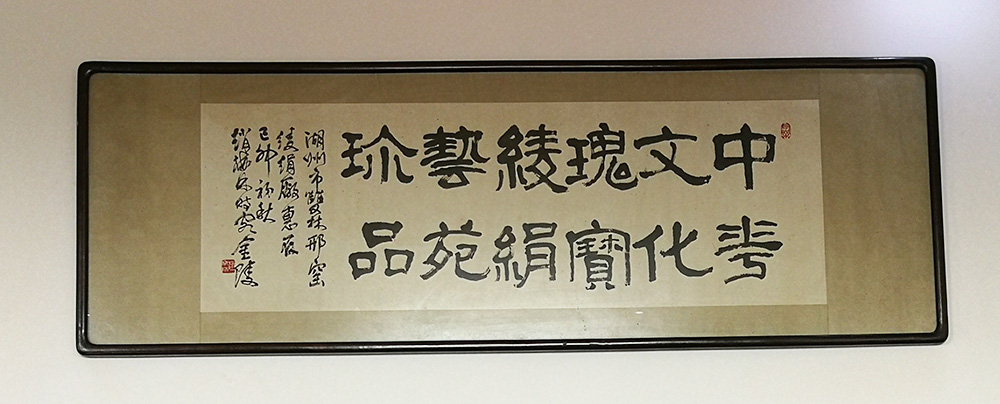 中華
文化
瑰寶
綾絹
藝苑
珍品
湖州市雙林邢窑
綾絹廠惠存
初秋
時客金陵